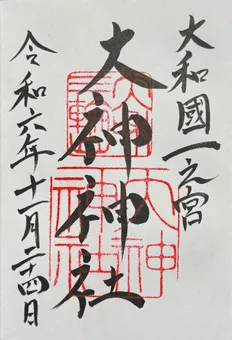 大和國一之宮
大神神社
令和六年十一月二十四日
三輪
大神神社